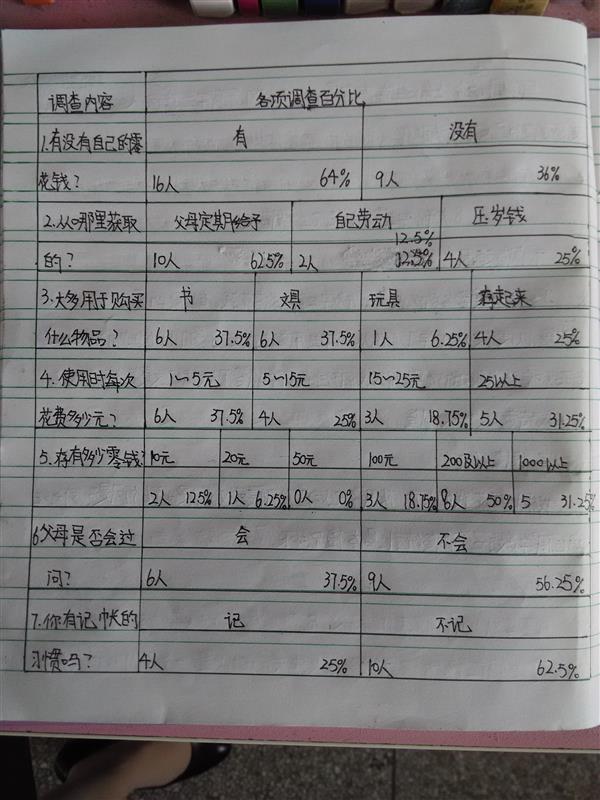 调查内容 各项调查百分比
1.有没有自己的零 有 没有
花钱? 16人 64% 9人 36%
2.从哪里获取 父母定期给予 自己劳动 压岁钱
12.5%
的? 10人 62.5% 2人 4人 25%
3.大多用于购买 书 文具 玩具 存起来
什么物品? 6人 37.5% 6人 37.5% 1人 6.25% 4人 25%
4.使用时每次 1~5元 5~15元 15~25元 25以上
花费多少元? 6人 37.5% 4人 25% 3人 18.75% 5人 31.25%
5.存有多少零钱? 10元 20元 50元 100元 200及以上 1000以上
2人 12.5% 1人 6.25% 0人 0% 3人 18.75% 8人 50% 5 31.25%
6父母是否会过 会 不会
问? 6人 37.5% 9人 56.25%
7.你有记帐的 记 不记
习惯吗? 4人 25% 10人 62.5%